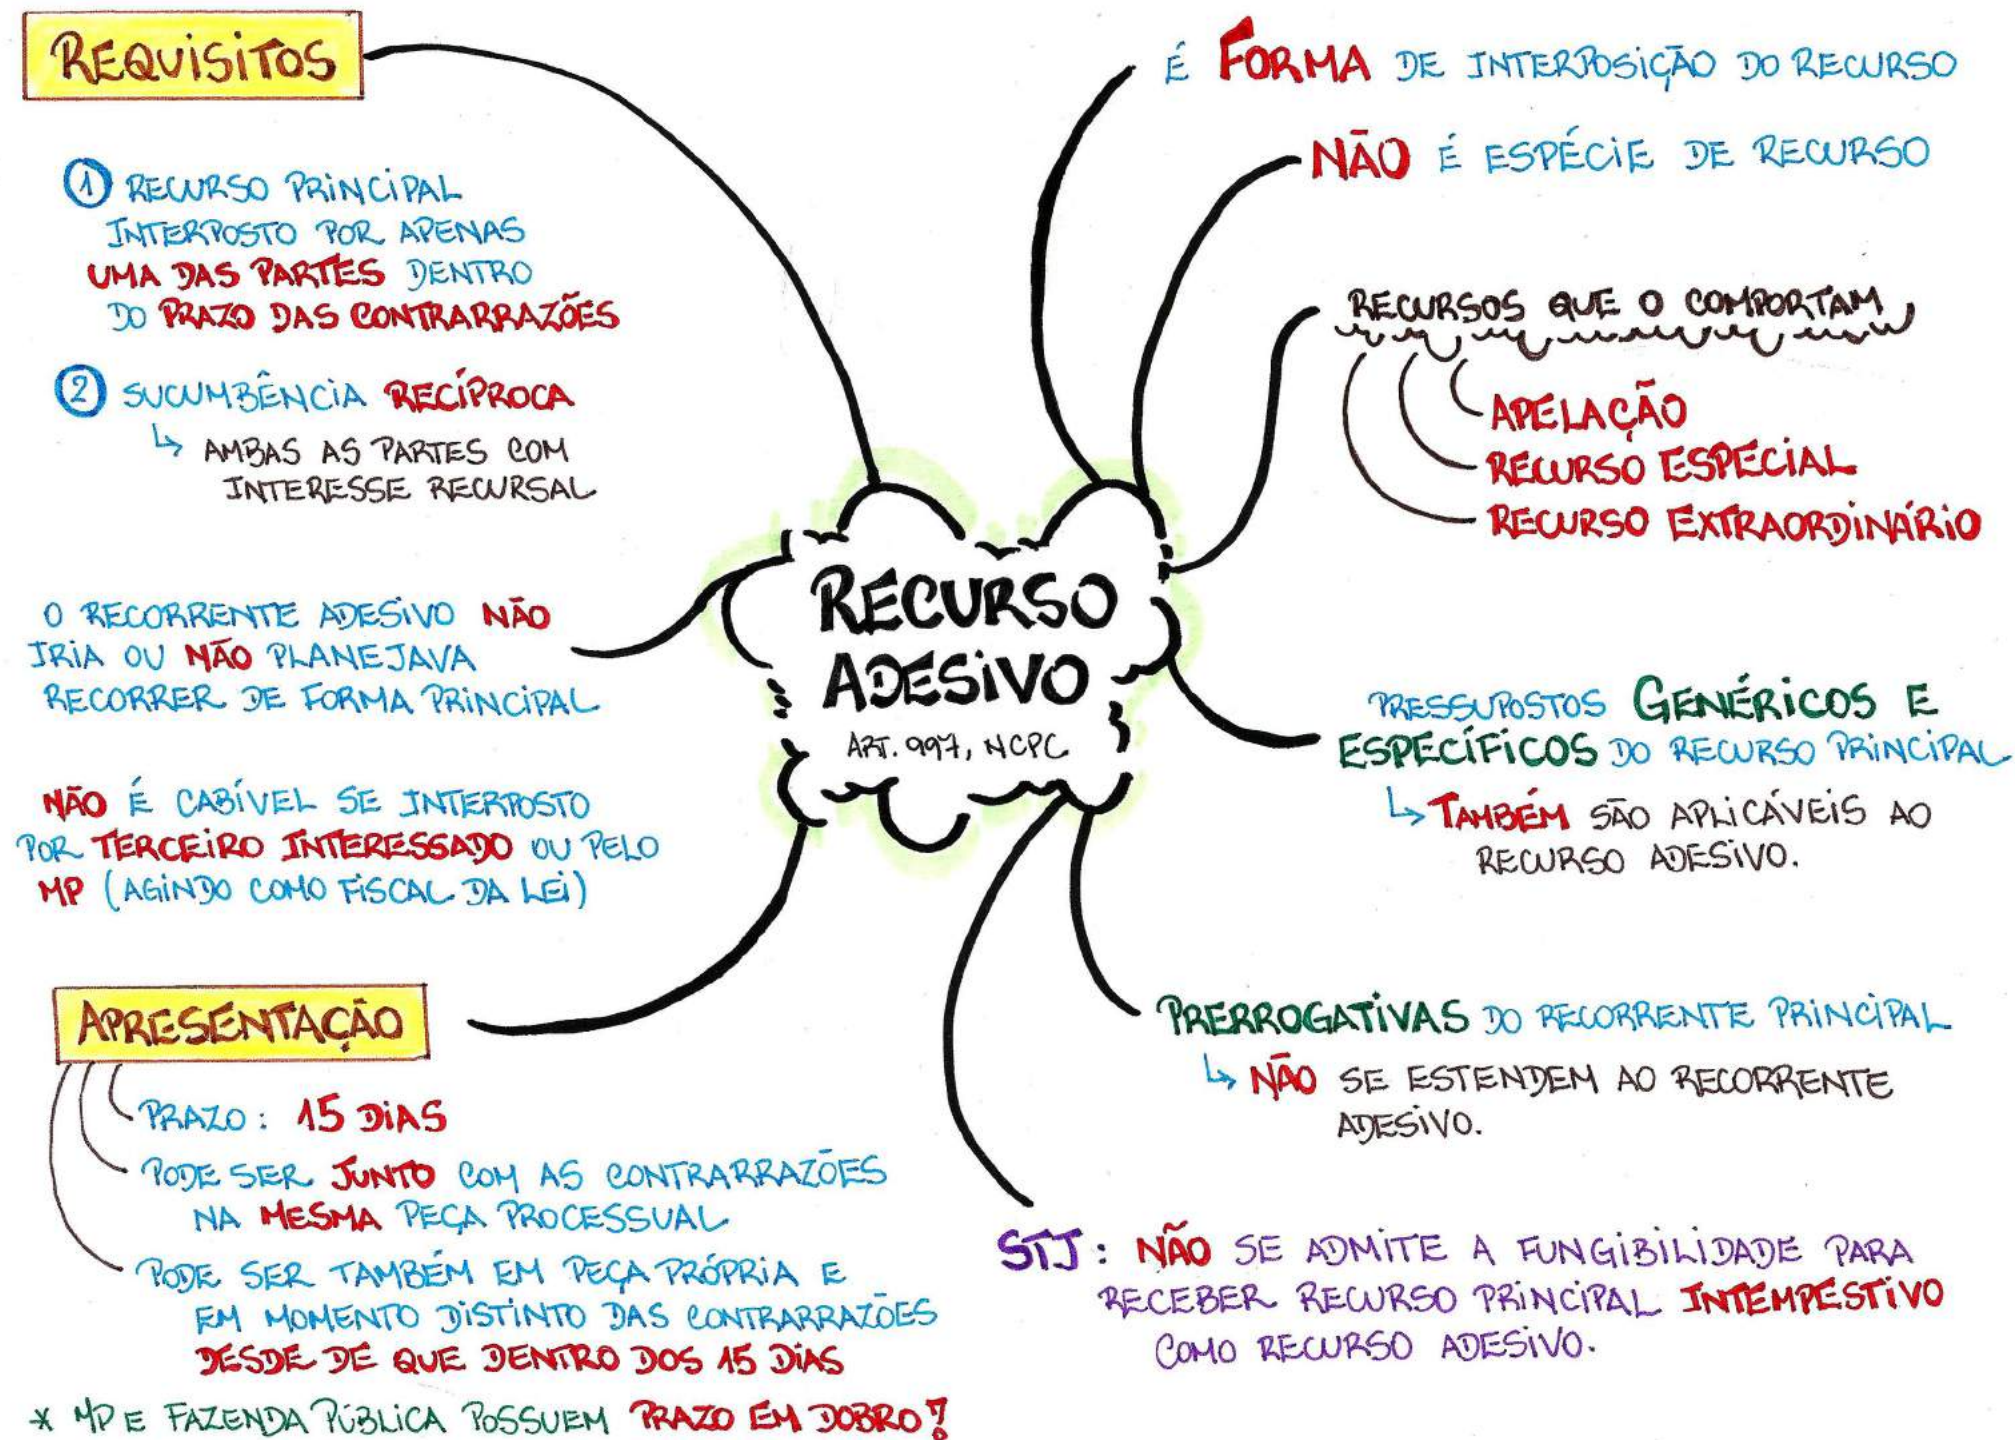 REQUISITOS
① RECURSO PRINCIPAL
INTERPOSTO POR APENAS
UMA DAS PARTES DENTRO
DO PRAZO DAS CONTRARRAZÕES
② SUCUMBÊNCIA RECÍPROCA
↳ AMBAS AS PARTES COM
INTERESSE RECURSAL
O RECORRENTE ADESIVO NÃO
IRIA OU NÃO PLANEJAVA
RECORRER DE FORMA PRINCIPAL
NÃO É CABÍVEL SE INTERPOSTO
POR TERCEIRO INTERESSADO OU PELO
MP (AGINDO COMO FISCAL DA LEI)
APRESENTAÇÃO
PRAZO: 15 DIAS
PODE SER JUNTO COM AS CONTRARRAZÕES
NA MESMA PEÇA PROCESSUAL
PODE SER TAMBÉM EM PEÇA PRÓPRIA E
EM MOMENTO DISTINTO DAS CONTRARRAZÕES
DESDE DE QUE DENTRO DOS 15 DIAS
* MP E FAZENDA PÚBLICA POSSUEM PRAZO EM DOBRO!
RECURSO
ADESIVO
ART. 997, NCPC
É FORMA DE INTERPOSIÇÃO DO RECURSO
NÃO É ESPÉCIE DE RECURSO
RECURSOS QUE O COMPORTAM
APELAÇÃO
RECURSO ESPECIAL
RECURSO EXTRAORDINÁRIO
PRESSUPOSTOS GENÉRICOS E
ESPECÍFICOS DO RECURSO PRINCIPAL
↳ TAMBÉM SÃO APLICÁVEIS AO
RECURSO ADESIVO.
PRERROGATIVAS DO RECORRENTE PRINCIPAL
↳ NÃO SE ESTENDEM AO RECORRENTE
ADESIVO.
STJ: NÃO SE ADMITE A FUNGIBILIDADE PARA
RECEBER RECURSO PRINCIPAL INTEMPESTIVO
COMO RECURSO ADESIVO.